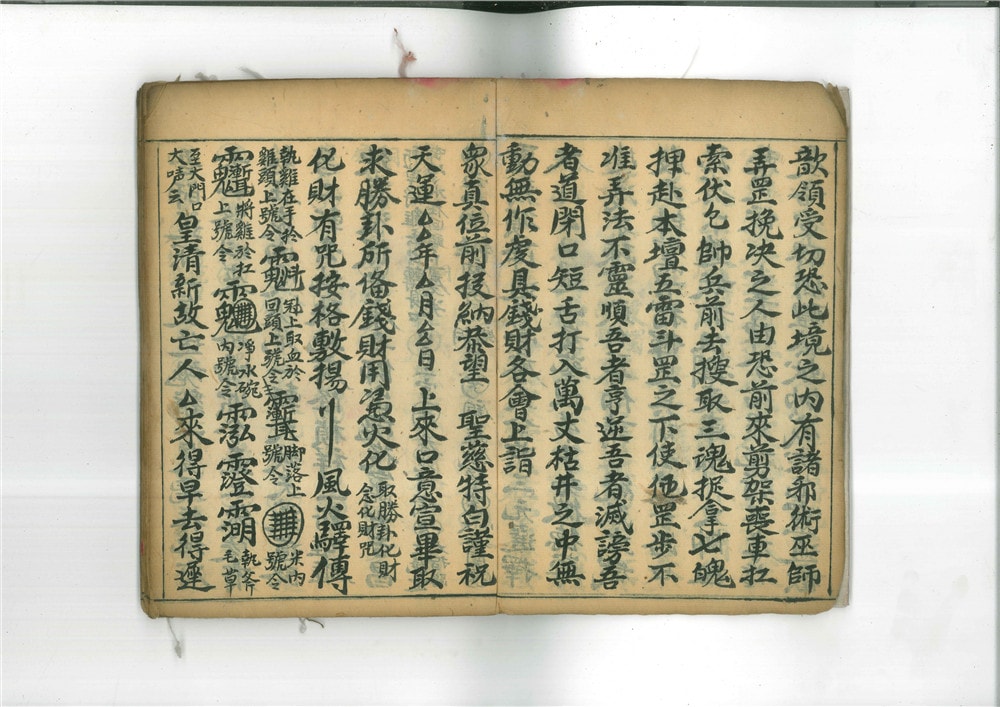 歆領受切恐此境之内有諸邪術巫師
弄罡挽决之人由恐前來剪架喪車扛
索伏乞帥兵前去搜取三魂捉拿七魄
押赴本壇五雷斗罡之下使他罡步不
准弄法不靈順吾者亨逆吾者滅謗吾
者道閉口短舌打入萬丈枯井之中無
動無作虔具錢財各會上詣
衆真位前投納恭望 聖慈特白謹祝
天運厶厶年厶月厶厶日 上來口意宣畢取
求勝卦所俻錢財用凴火化 取勝卦化財念化財咒
化財有咒按格敷揚 風火驛傳
執雞在手於雞頭上號令 冠上取血於回頭上號令 脚落上號令 米内號令
上號令 將雞於扛上號令 淨水碗内號令 執斧毛草
至大門口大啼云 皇清新故亡人厶來得早去得遲